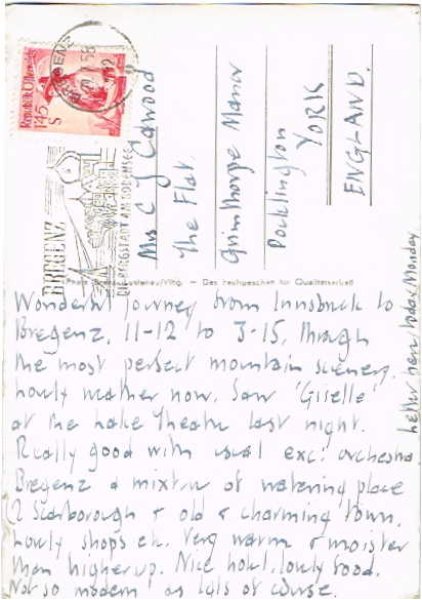 BREGENZ
58
Republik Österreich
1.45
S
BREGENZ
DIE FESTSTADT AM BODENSEE
Mrs C J Cawood
The Flat,
Grimthorpe Manor
Pocklington
YORK
ENGLAND.
Das Fachgeschäft für Qualitätsarbeit
Wonderful journey from Innsbruck to
Bregenz, 11-12 to 3-15, through
the most perfect mountain scenery.
Lovely weather now. Saw 'Giselle'
at the Lake Theatre last night.
Really good with usual exc: orchestra
Bregenz a mixture of watering place
Scarborough & old & charming town.
Lovely shops etc. Very warm & moister
than higher up. Nice hotel, lovely food.
Not so modern as Igls of course.
Letter here today Monday